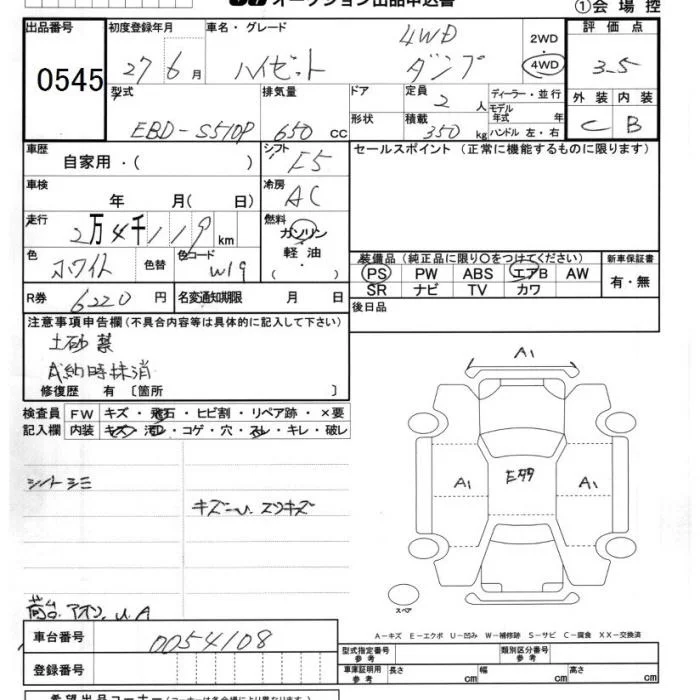 オークション出品申込書
①会場控
出品番号 初度登録年月 車名・グレード 2WD 評価点
0545 27 6月 ハイゼット 4WD ダンプ 4WD 3.5
型式 排気量 ドア 定員 ディーラー・並行 外装 内装
EBD-S510P 650cc 2人 モデル年式 年 C B
形状 積載 350kg ハンドル 左・右
車歴 シフト F5 セールスポイント(正常に機能するものに限ります)
自家用・( )
車検 冷房 AC
年 月( 日)
走行 燃料
2万4千119km ガソリン
軽油
・( )
色 ホワイト 色替 色コード W19
装備品(純正品に限り○をつけてください) 新車保証書
PS PW ABS エアB AW 有・無
SR ナビ TV カワ
R券 6220円 名変通知期限 月 日
後日品
注意事項申告欄(不具合内容等は具体的に記入して下さい)
土砂禁
成約時抹消
修復歴 有〔箇所 〕
検査員 FW キズ・飛石・ヒビ割・リペア跡・×要
記入欄 内装 キズ・汚レ・コゲ・穴・スレ・キレ・破レ
A1
A1 A1
シートシミ
キズ
スリキズ
荷台 U.A
スペア
A-キズ E-エクボ U-凹み W-補修跡 S-サビ C-腐食 XX-交換済
車台番号 0054108
型式指定番号 参考 類別区分番号 参考
登録番号
車庫証明用 参考 長さ cm 幅 cm 高さ cm
希望出品コーナー